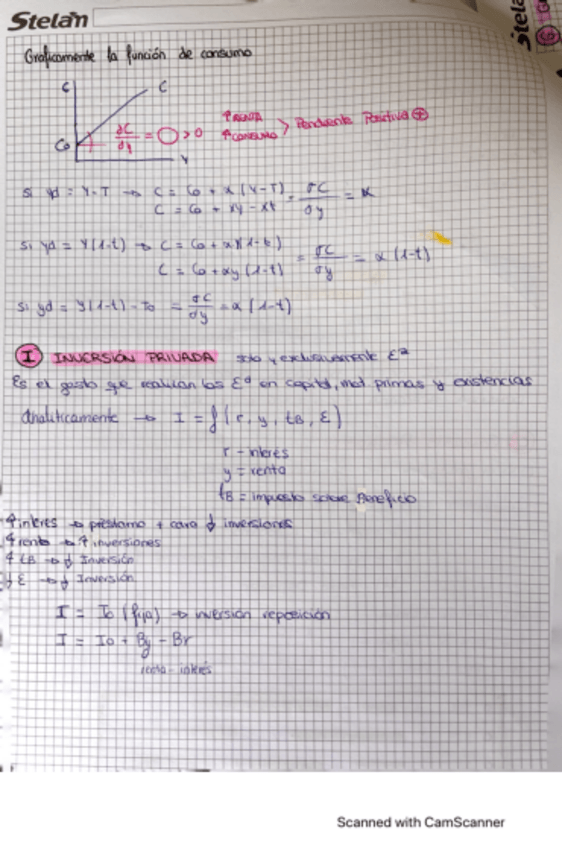 Stelan
Stela
Graficamente la función de consumo
C
C
Co
dC/dy = >0
Y
↑ RENTA
↑ CONSUMO > Pendiente Positiva ⊕
Si yd = Y-T → C = Co + α(Y-T) = σC/σy = α
C = Co + αy - αt
Si yd = Y(1-t) → C = Co + αY(1-t) = σC/σy = α(1-t)
C = Co + αy (1-t)
Si yd = Y(1-t) - To = σC/σy = α(1-t)
I INVERSIÓN PRIVADA solo y exclusivamente Eª
Es el gasto que realizan las Eª en capital, mat primas y existencias
Analíticamente → I = f(r, y, tB, E)
r - interes
y = renta
tB = impuesto sobre Beneficio
↑ interes → préstamo + caro ↓ inversiones
↑ renta → ↑ inversiones
↑ tB → ↓ Inversión
↓ E → ↓ Inversión
I = Io (fijo) → inversión reposición
I = Io + By - Br
renta - interés
Scanned with CamScanner